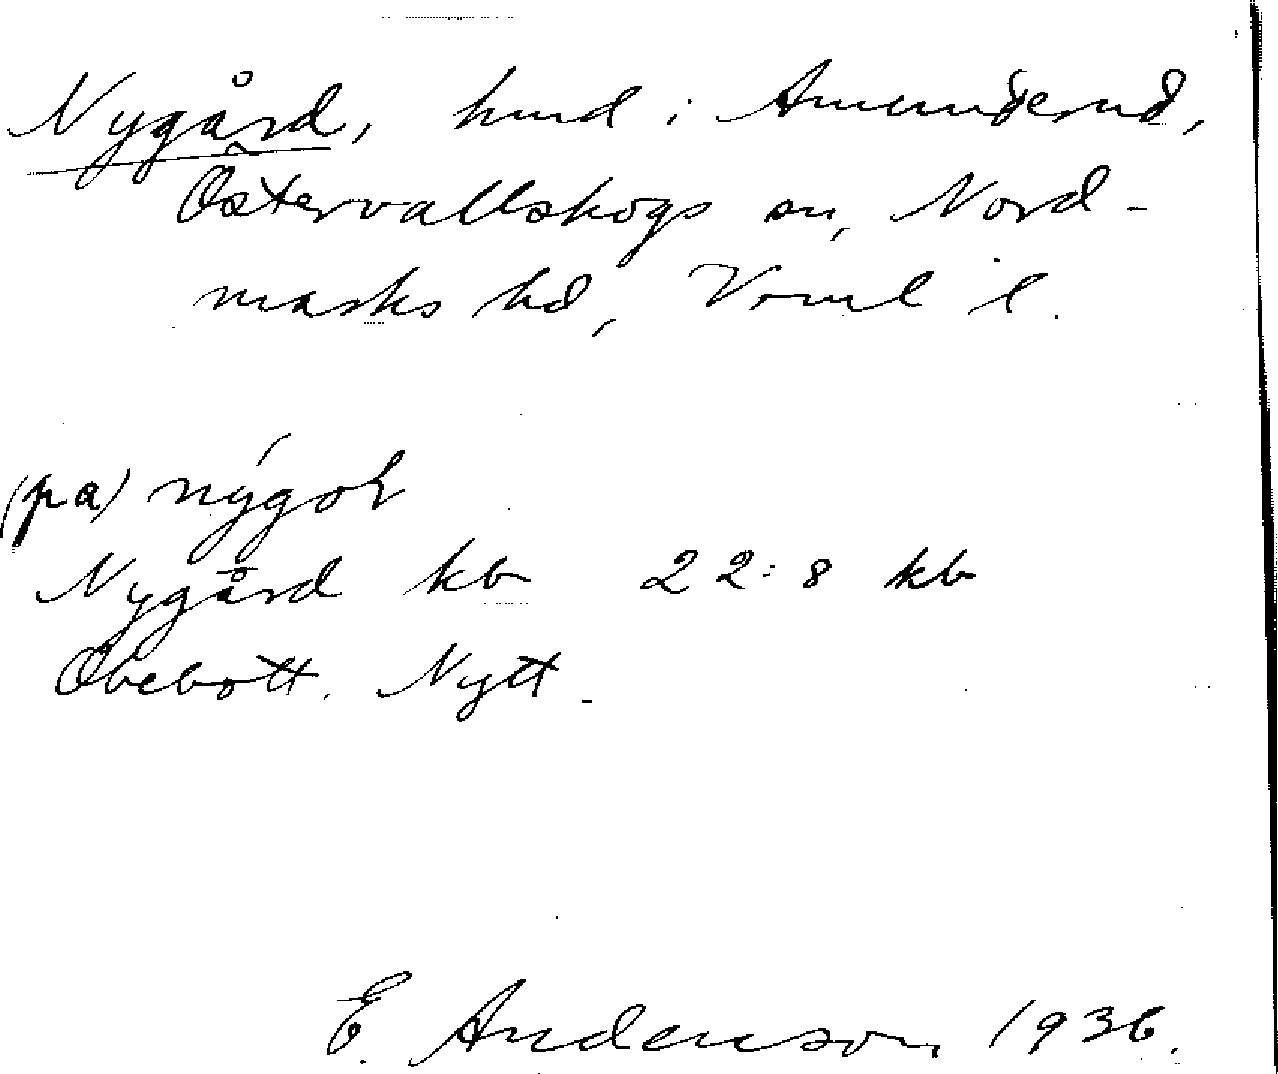 Nygård, hmd i Amunderud,
Östervallskogs sn, Nord-
marks hd, Vrml l.
(pa) nýgoɽ
Nygård kb 22:8 kb
Obebott. Nytt.
E. Anderson 1936.